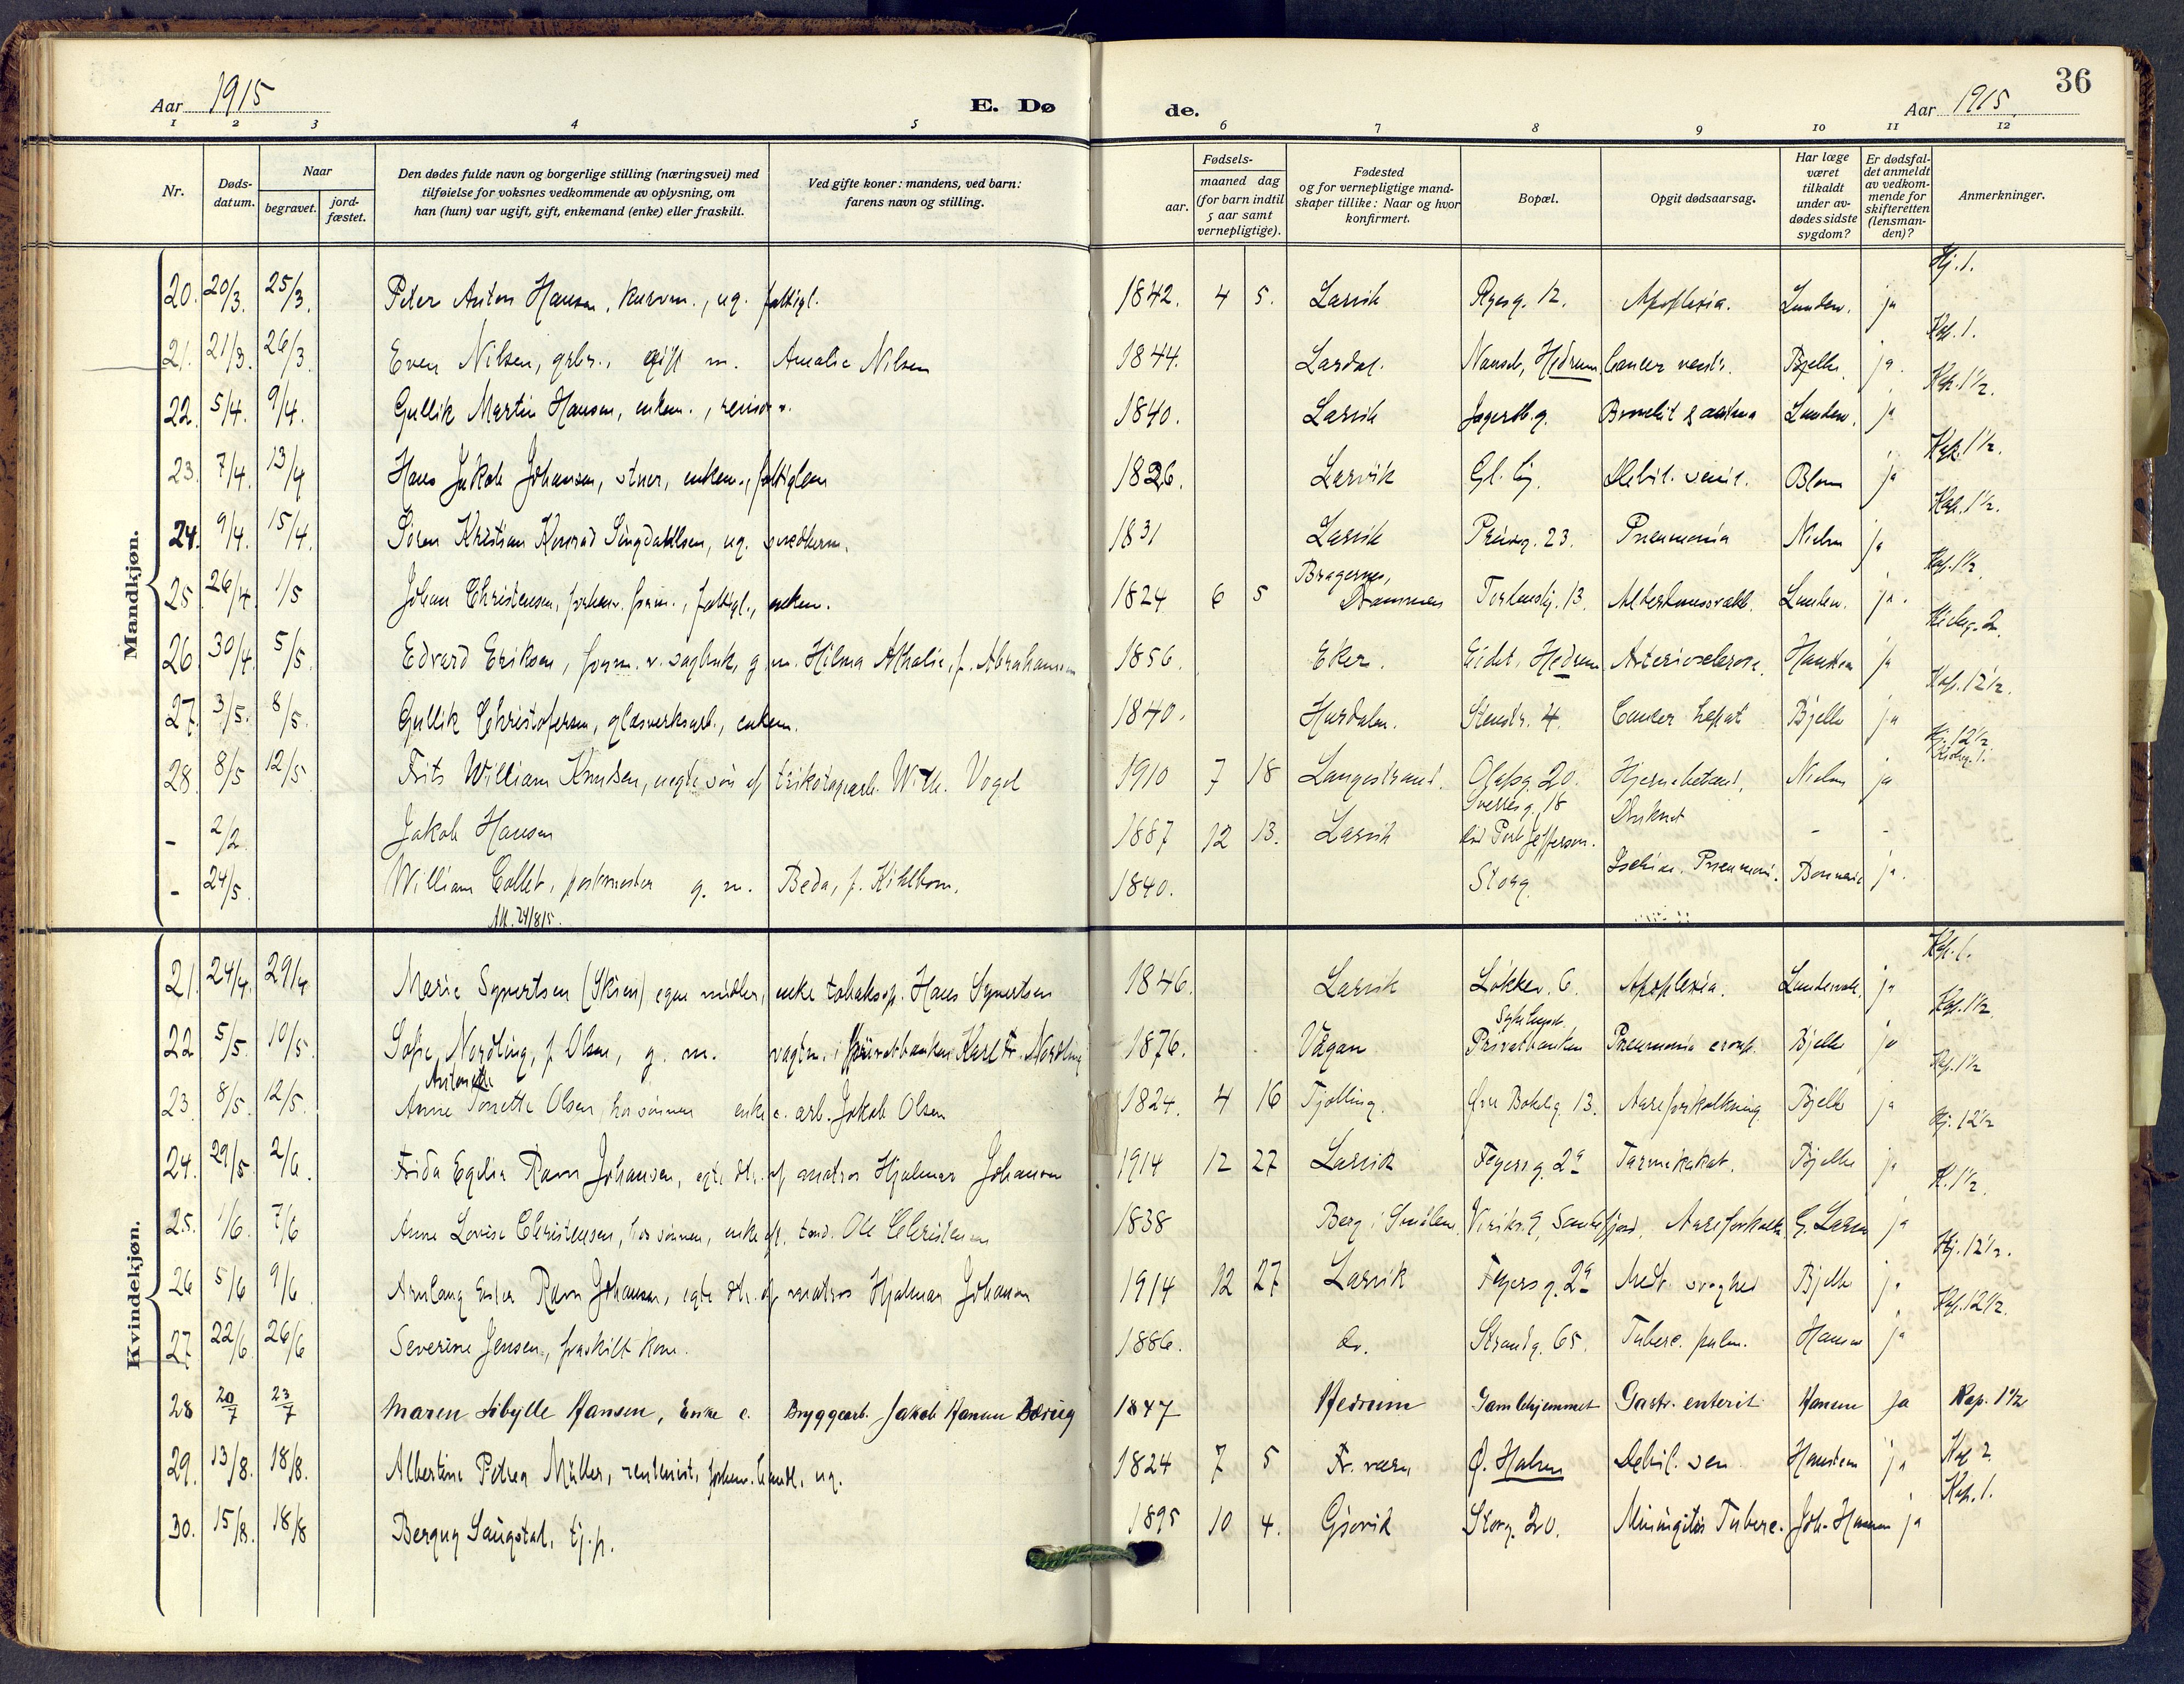 36
Aar 1915 E. Dø de. Aar 1915.
1 2 3 4 5 6 7 8 9 10 11 12
Nr. Døds-datum. Naar begravet. jord-fæstet. Den dødes fulde navn og borgerlige stilling (næringsvei) med tilføielse for voksnes vedkommende av oplysning, om han (hun) var ugift, gift, enkemand (enke) eller fraskilt. Ved gifte koner: mandens, ved barn: farens navn og stilling. Fødsels- aar. maaned dag (for barn indtil 5 aar samt vernepligtige). Fødested og for vernepligtige mandskaper tillike: Naar og hvor konfirmert. Bopæl. Opgit dødsaarsag. Har læge været tilkaldt under avdødes sidste sygdom? Er dødsfaldet anmeldt av vedkommende for skifteretten (lensmanden)? Anmerkninger.
Mandkjøn.
20. 20/3. 25/3. Peter Anton Hansen, kurvm., ug. fattigl. 1842. 4 5. Larvik Ryesg. 12. Apoplexia. Lunden. ja Hj. 1.
21. 21/3. 26/3. Even Nilsen, grbr., gift m. Amalie Nilsen 1844. Lardal. Nanset, Hedrum Cancer ventr. Bjelke ja. Kap. 1.
22. 5/4. 9/4. Gullik Martin Hansen, enkem., revisor. 1840. Larvik Jegersb.g. Bronchit & astma Lunden. ja Kap. 1½.
23. 7/4. 13/4 Hans Jakob Johansen, stuer, enkem., fattiglem 1826. Larvik Gl. Debil. senil. Blom ja Kap. 1½.
24. 9/4. 15/4. Sören Kristian Konrad Singdahlsen, ug. 1831 Larvik Prinsg. 23. Pneumonia Nielsen ja Kap. 1½.
25. 26/4. 1/5 Johan Christensen, forhen. form., fattigl., enkem. 1824 6 5 Bragernes, Drammen 13. Alderdomssvakh. Lunden. ja. Kap. 1½
26. 30/4. 5/5. Edvard Eriksen, form. v. sagbruk, g. m. Hilma Athalie, f. Abrahamsen 1856. Eker. Eidet, Hedrum Arteriosclerose. Hansteen ja 2.
27. 3/5. 8/5. Gullik Christofersen, glasverksarb., enkem. 1840. Hurdalen. Stenstr. 4. Cancer hepat Bjelke ja Kap. 12½.
28. 8/5 12/5. Frits William Knudsen, uegte sön af trikotagearb. Wilh. Vogel 1910 7 18 Langestrand. Olafsg. 20. Hjernebetænd. Nielsen ja Hj. 12½
- 2/2. Jakob Hansen 1887 12 13. Larvik Sverresg. 18 Port Jefferson. Druknet - -
- 24/5. William Collet, postmester g. m. Beda, f. Kihlbom. 1840. Storg. Pneumoni. ja.
24/8 15.
Kvindekjøn.
21. 24/4. 29/4 Marie Syvertsen (Skien) egne midler, enke tobaksp. Hans Syvertsen 1846. Larvik Løkkev. 6. Apoplexia. Lundevall. ja Kap. 1.
22 5/5. 10/5. Sofie Nordling, f. Olsen, g. m. vagtm. i privatbanken Karl Fr. Nordling 1876. Vågan Privatbanken Pneumonia croup. Bjelke ja Kap. 1½.
23. 8/5. 12/5. Anne Tonette Olsen, hos sønnen enke e. arb. Jakob Olsen 1824. 4 16 Tjølling. Øvre Bøkelig. 13. Aareforkalkning Bjelke ja Kap. 1½
24. 29/5. 2/6. Frida Egelia Ravn Johansen, egte dtr. af matros Hjalmar Johansen 1914 12 27 Larvik Feyersg. 2a Tarmkatar. Bjelke ja Hj. 12½
25. 1/6. 7/6 Anne Lovise Christensen, hos sønnen, enke eft. tomd. Ole Christensen 1838 Berg i Smålene. Sandefjord. Aareforkalkn. G. Larsen ja K. 1½.
26 5/6 9/6. Ester Ravn Johansen, egte dtr. af matros Hjalmar Johansen 1914 12 27 Larvik Feyersg. 2a Medf. svaghed Bjelke ja Hj. 12½.
27 22/6 26/6 Severine Jensen, fraskilt kone. 1886. do. Strandg. 65. Tuberc. pulm. Hansen ja Kap. 12½.
28 20/7 23/7 Maren Sibylle Hansen, Enke e. Bryggearb. Jakob Hansen 1847 Hedrum Gamlehjemmet Gastr. enterit Hansen ja Kap. 1½
29. 13/8. 18/8. Albertine Petrea Müller, rentenist, forhen. handl., ug. 1824 7 5 Fr. værn Ø. Halsen Debil. sen Hansteen ja Kap 2.
30. 15/8. 18/8 Bergny Saugstad, tj.p. 1895 10 4. Gjøvik Storg. 20. Miningitis Tuberc. Joh. Hansen ja Kap. 1.